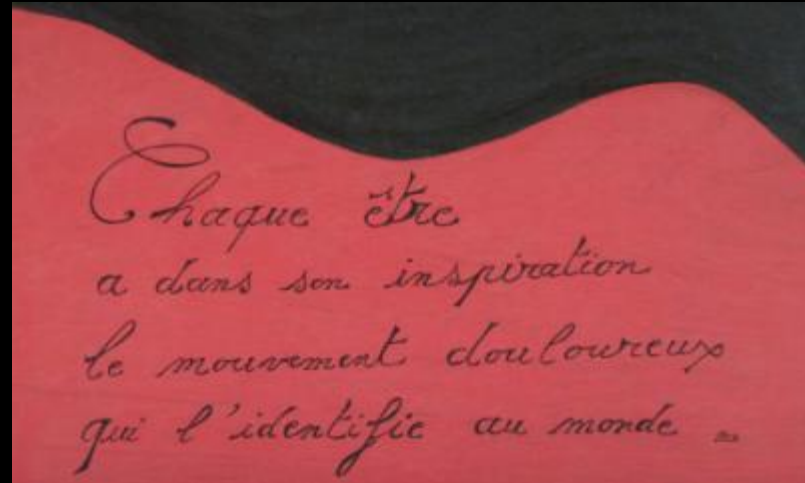 Chaque être
a dans son inspiration
le mouvement douloureux
qui l'identifie au monde